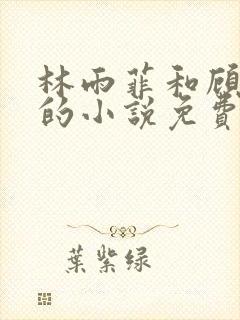 林雨菲和顾
的小說免費
葉紫绿